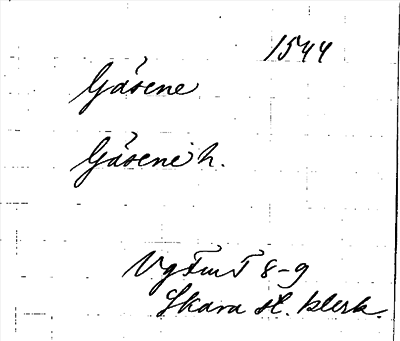 1544
Gäsene
Gäsene h.
VgFmT 8-9
Skara st. klerk.